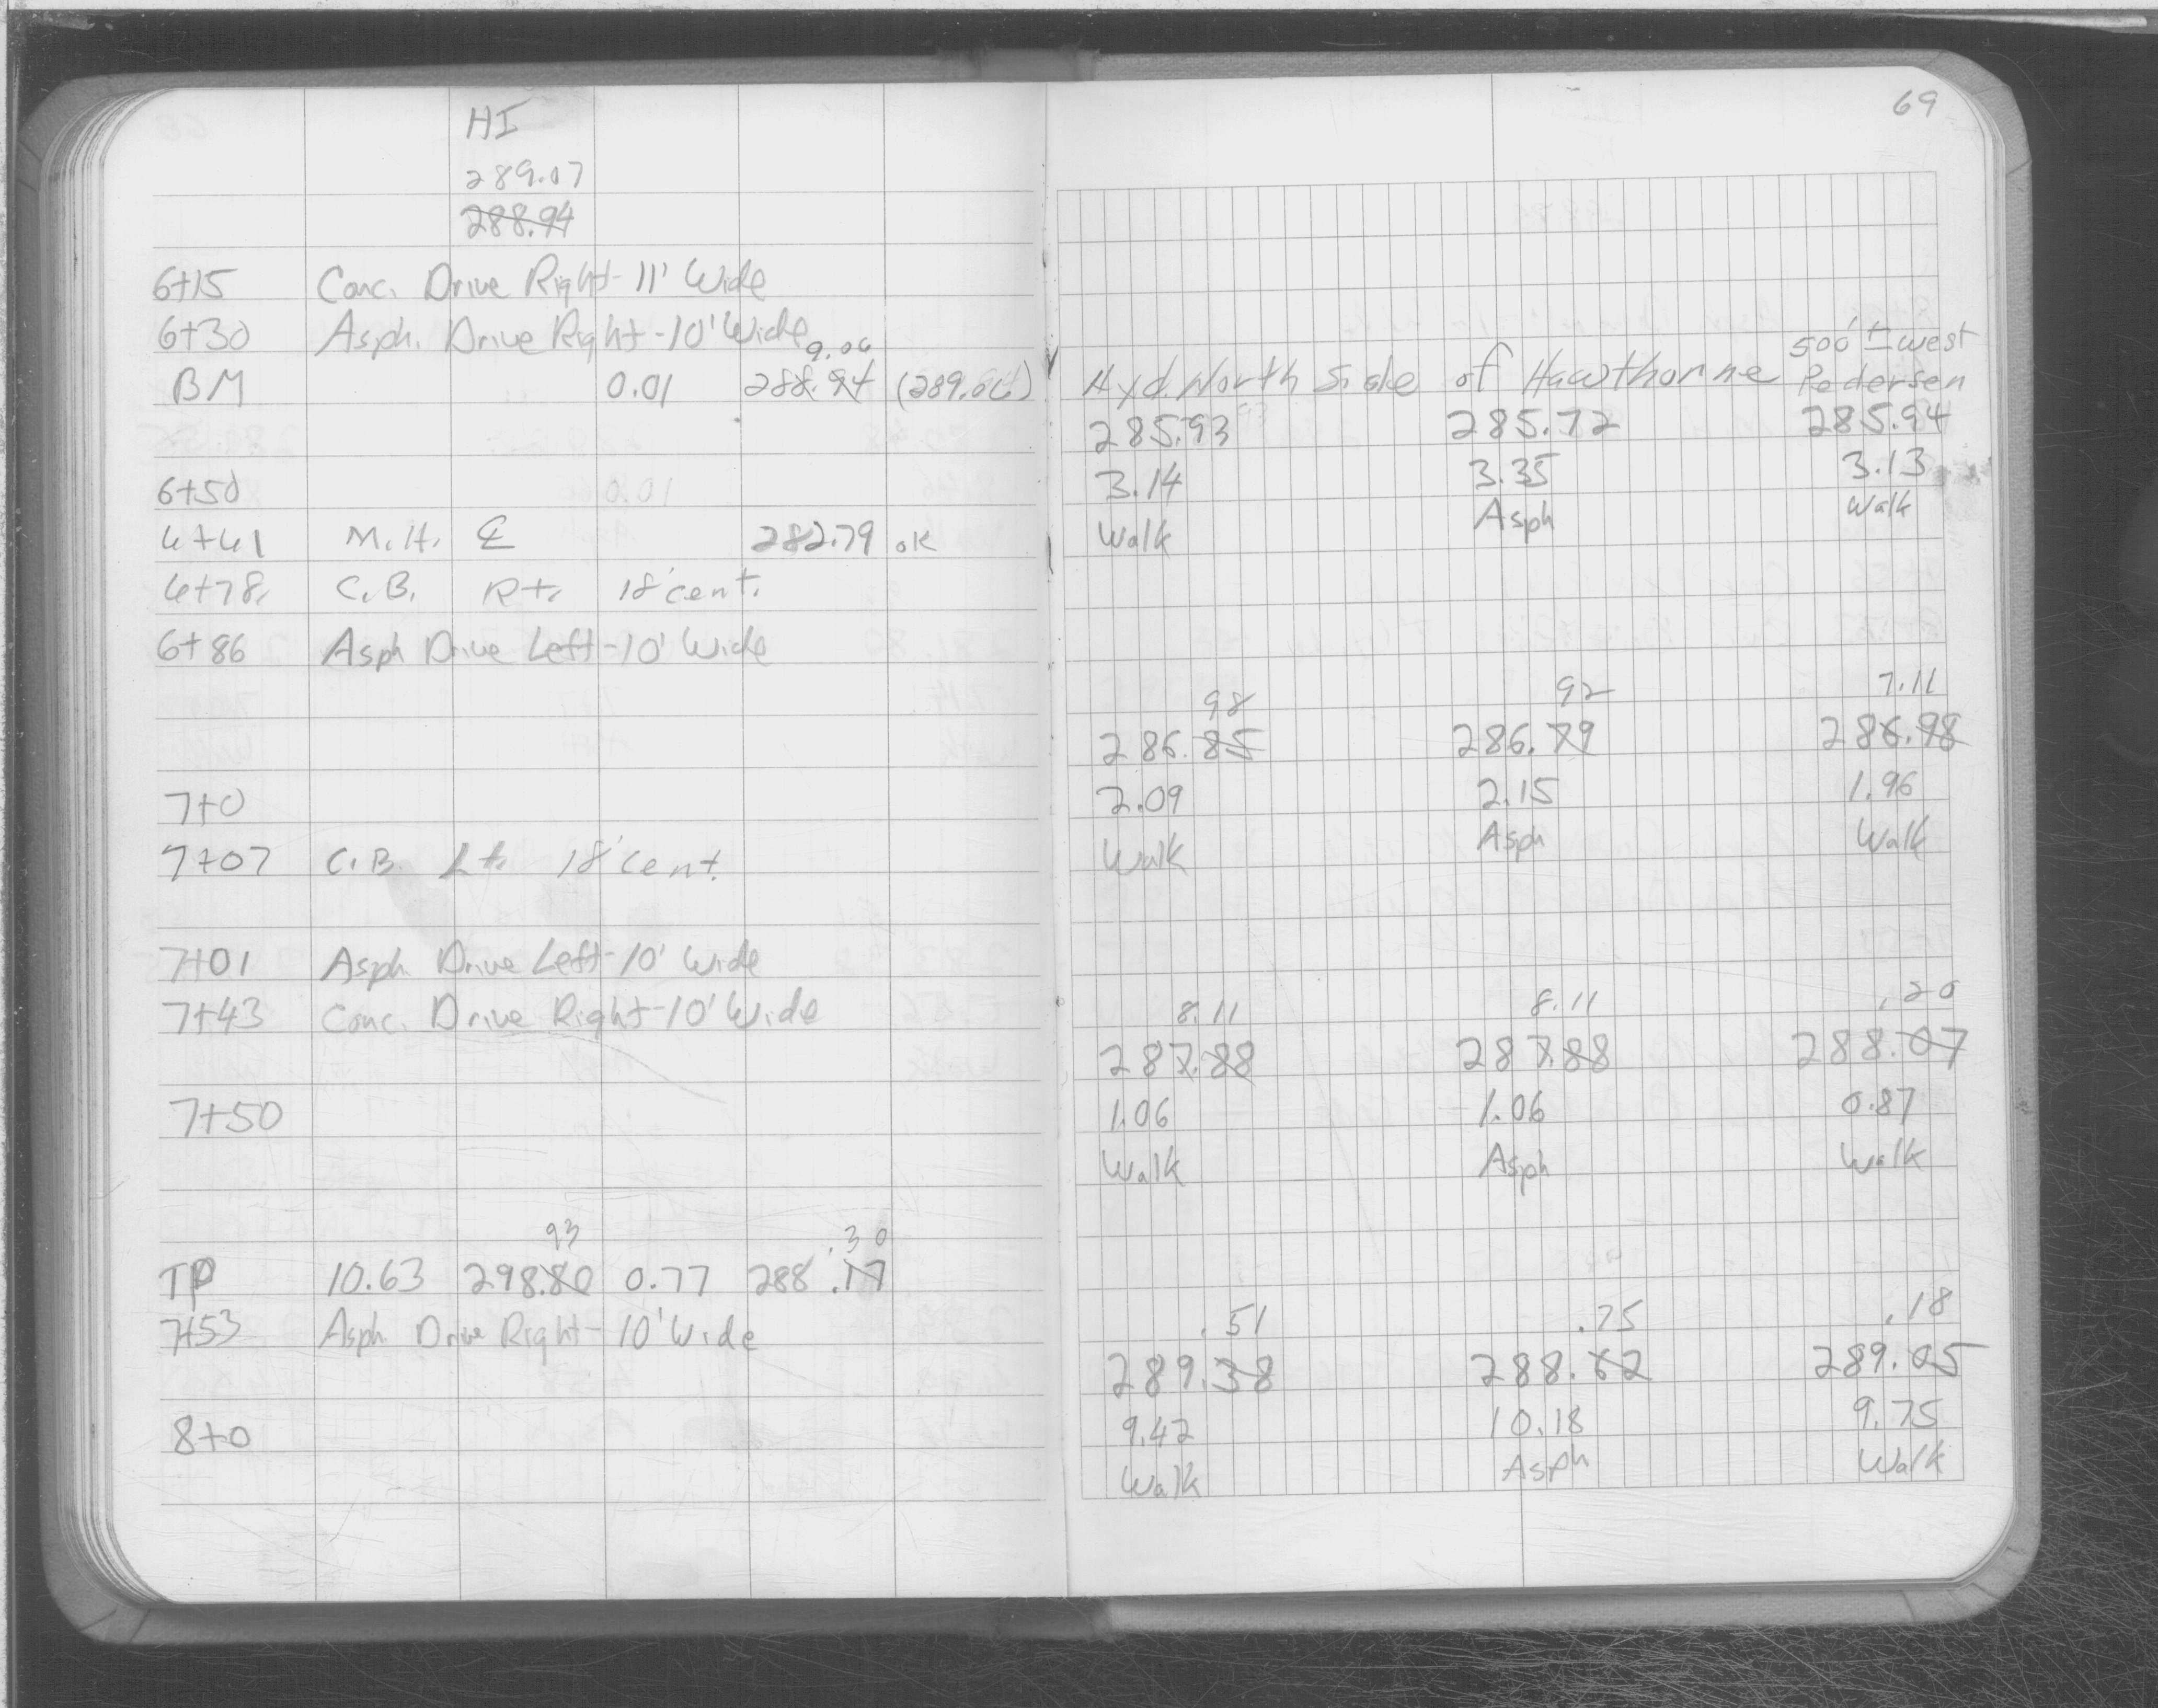 69
HI
289.07
288.94
6+15 Conc. Drive Right-11' Wide
6+30 Asph. Drive Right-10' Wide
9.06
BM 0.01 288.94 (289.06)
6+50
6+41 M.H. ℄ 282.79 OK
6+78 C.B. Rt. 18' cent.
6+86 Asph Drive Left-10' Wide
7+0
7+07 C.B. Lt. 18' cent.
7+01 Asph Drive Left-10' Wide
7+43 Conc. Drive Right-10' Wide
7+50
93 .30
TP 10.63 298.80 0.77 288.17
7+53 Asph. Drive Right-10' Wide
8+0
500' ± west
Hyd. North Side of Hawthorne Pedersen
285.93 285.72 285.94
3.14 3.35 3.13
Walk Asph Walk
98 92 7.11
286.85 286.79 286.98
2.09 2.15 1.96
Walk Asph Walk
8.11 8.11 .20
287.88 287.88 288.07
1.06 1.06 0.87
Walk Asph Walk
.51 .75 .18
289.38 288.62 289.05
9.42 10.18 9.75
Walk Asph Walk